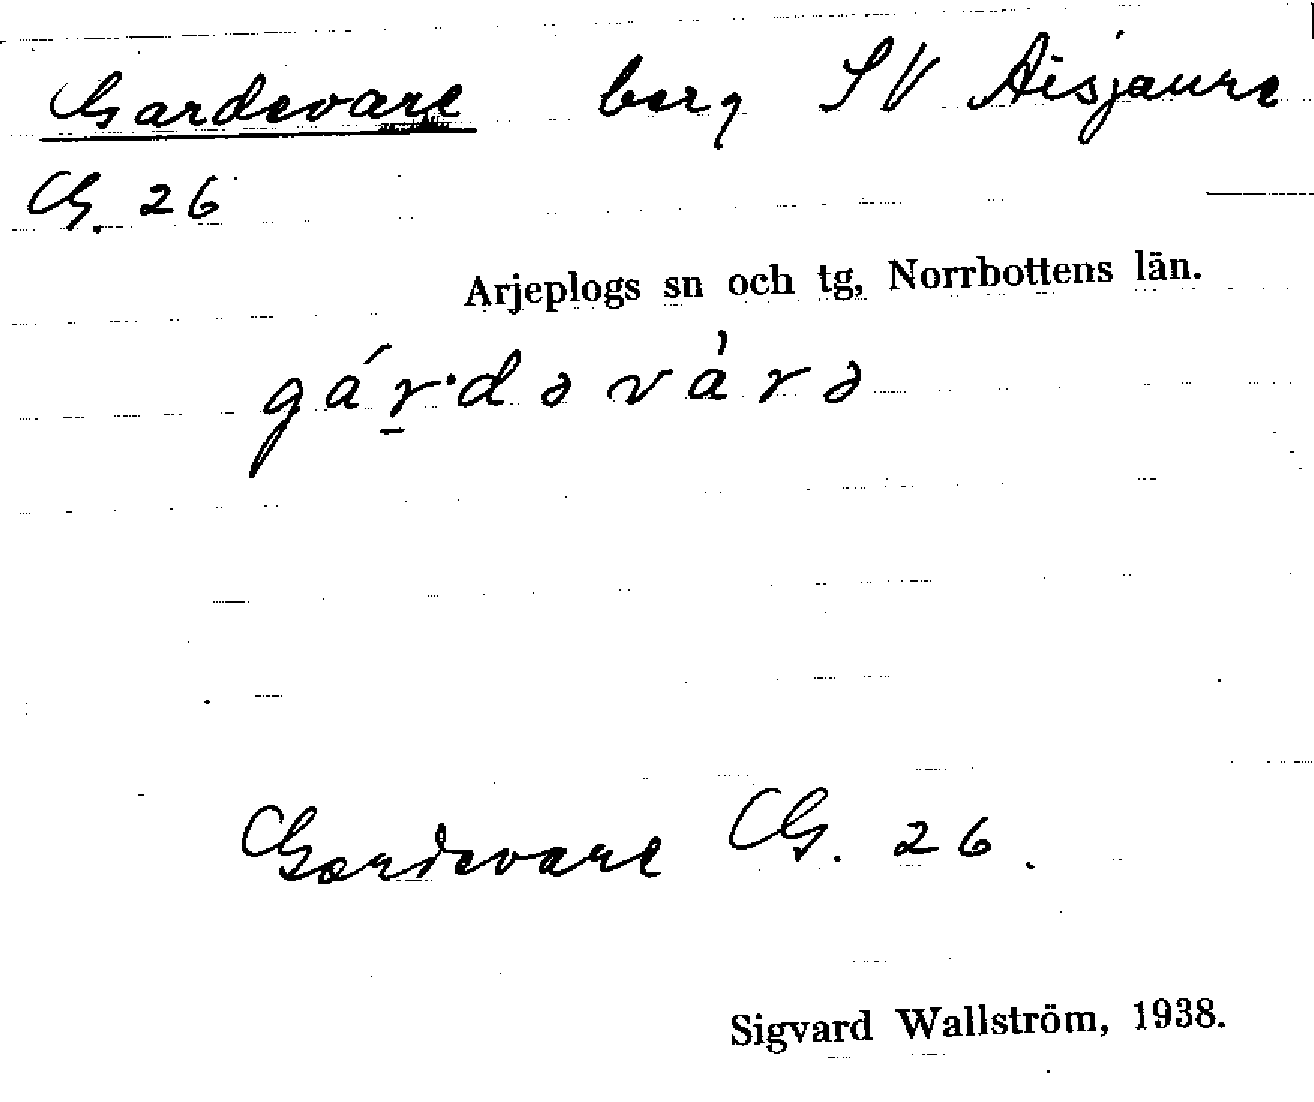 Gardevare berg SV Aisjaure
G. 26
Arjeplogs sn och tg, Norrbottens län.
gáṟ·dəvàrə
Gardevare G. 26.
Sigvard Wallström, 1938.